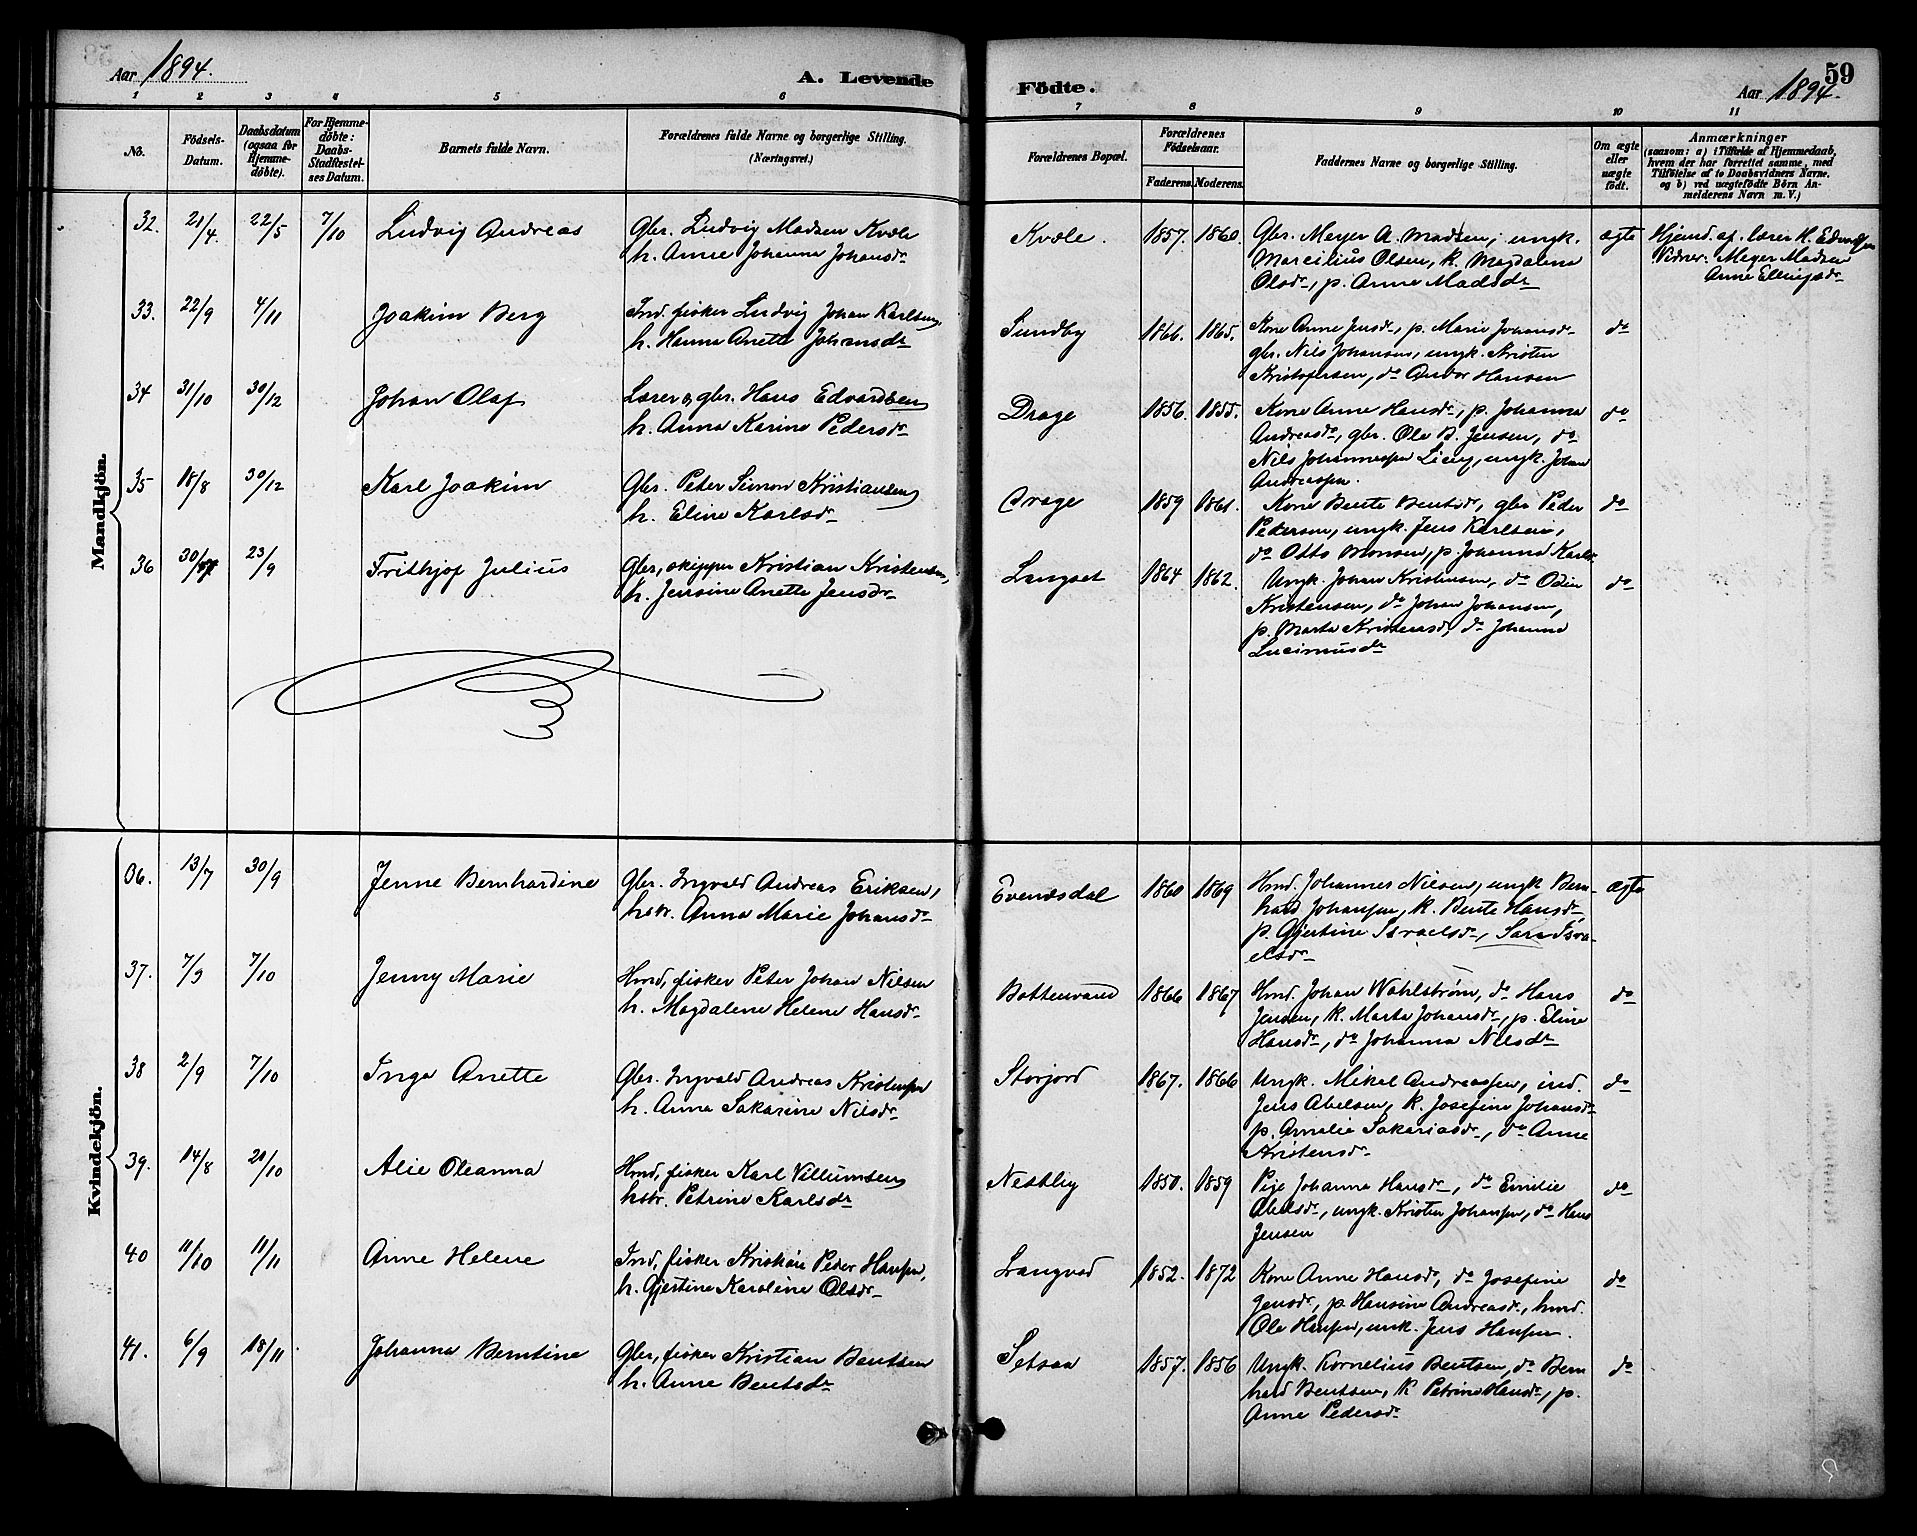 Aar 1894.
A. Levende
Födte.
59
Aar 1894.
1 2 3 4 5 6 7 8 9 10 11
No.
Födsels-Datum.
Daabsdatum (ogsaa for Hjemmedöbte).
For Hjemmedöbte: Daabs-Stadfæstelses Datum.
Barnets fulde Navn.
Forældrenes fulde Navne og borgerlige Stilling.
(Næringsvei.)
Forældrenes Bopæl.
Forældrenes Födselsaar.
Faderens. Moderens.
Faddernes Navne og borgerlige Stilling.
Om ægte eller uægte födt.
Anmærkninger
(saasom: a) i Tilfælde af Hjemmedaab,
hvem der har forrettet samme, med
Tilföielse af to Daabsvidners Navne.
og b) ved uægtefödte Börn An-
melderens Navn m. V.)
Mandkjön.
32. 21/4. 22/5 7/10 Ludvig Andreas
Gbr. Ludvig Madsen Kvæle
h. Anne Johanna Johansdr
Kvæle. 1857. 1860.
Gbr. Meyer A. Madsen, ungk.
Marcilius Olsen, k. Magdalena
Olsdr, p. Anne Madsdr
ægte
Hjemd. af lærer H. Edvardsen
Vidner: Meyer Madsen
Anne Ellingsdr
33. 22/9 4/11 Joakim Berg
Ind. fisker Ludvig Johan Karlsen,
h. Hanna Anette Johansdr
Sundby 1866. 1865.
Kone Anne Jensdr, p. Marie Johansdr
gbr. Nils Johansen, ungk. Kristen
Kristofersen, do Andor Hansen
do
34 31/10 30/12 Johan Olaf
Lærer og gbr. Hans Edvardsen
h. Anna Karine Pedersdr
Drage 1856. 1855.
Kone Anne Hansdr, p. Johanna
Andreasdr, gbr. Ole B. Jensen, do
Nils Johannessen Lien, ungk. Johan
Andreassen.
do
35 18/8 30/12 Karl Joakim
Gbr. Peter Simon Kristiansen
h. Eline Karlsdr
Drage 1859 1861.
Kone Bente Bentsdr, gbr Peder
Pedersen, ungk. Jens Karlsen,
do Otto Monsen, p. Johanna Karlsdr
do
36 30/7 23/9 Frithjof Julius
Gbr, skipper Kristian Kristensen,
h. Jensine Anette Jensdr
Langset 1864 1862.
Ungk. Johan Kristensen, do Odin
Kristensen, do Johan Johansen,
p. Marta Kristensdr, do Johanna
do
Kvindekjön.
06. 13/7 30/9 Jenne Bernhardine
Gbr. Ingvald Andreas Eriksen,
hstr. Anna Marie Johansdr
Evenesdal 1860 1869
Hmd. Johannes Nilsen, ungk Bern-
hard Johansen, k. Bente Hansdr,
p. Gjertine Israelsdr, Sara Isra-
elsdr
ægte
37. 7/9 7/10 Jenny Marie
Hmd, fisker Peter Johan Nilsen
h. Magdalene Helene Hansdr
Bottenvand 1866 1867
Hmd. Johan Wahlström, do Hans
Jensen, k. Marta Johansdr, p. Eline
Hansdr, do Johanna Nilsdr
do
38 2/9 7/10 Inga Anette
Gbr. Ingvald Andreas Kristensen
h. Anna Sakarine Nilsdr
Storjord 1867. 1866
Ungk. Mikal Andreassen, ind.
Jens Abelsen, k. Josefine Johansdr
p. Amalie Sakariasdr, do Anne
Kristensdr
do
39. 14/8 21/10 Alie Oleanna
Hmd, fisker Karl Villumsen
hstr. Petrine Karlsdr
Nestby 1850. 1859
Pige Johanna Hansdr, do Emilie
Abelsdr, ungk. Kristen Johansen, do Hans
Jensen
do
40 11/10 11/11 Anne Helene
Ind, fisker Kristian Peder Hansen,
h. Gjertine Karoline Olsdr
Langvad 1852. 1872
Kone Anne Hansdr, do Josefine
Jensdr, p. Hansine Andreasdr, hmd.
Ole Hansen, ungk. Jens Hansen.
do
41. 6/9 18/11. Johanna Berntine
Gbr, fisker Kristian Bentsen
h. Anne Bentsdr
Setsaa 1857. 1856
Ungk. Kornelius Bentsen, do Bern
hard Bentsen, k Petrine Hansdr, p.
Anne Pedersdr
do